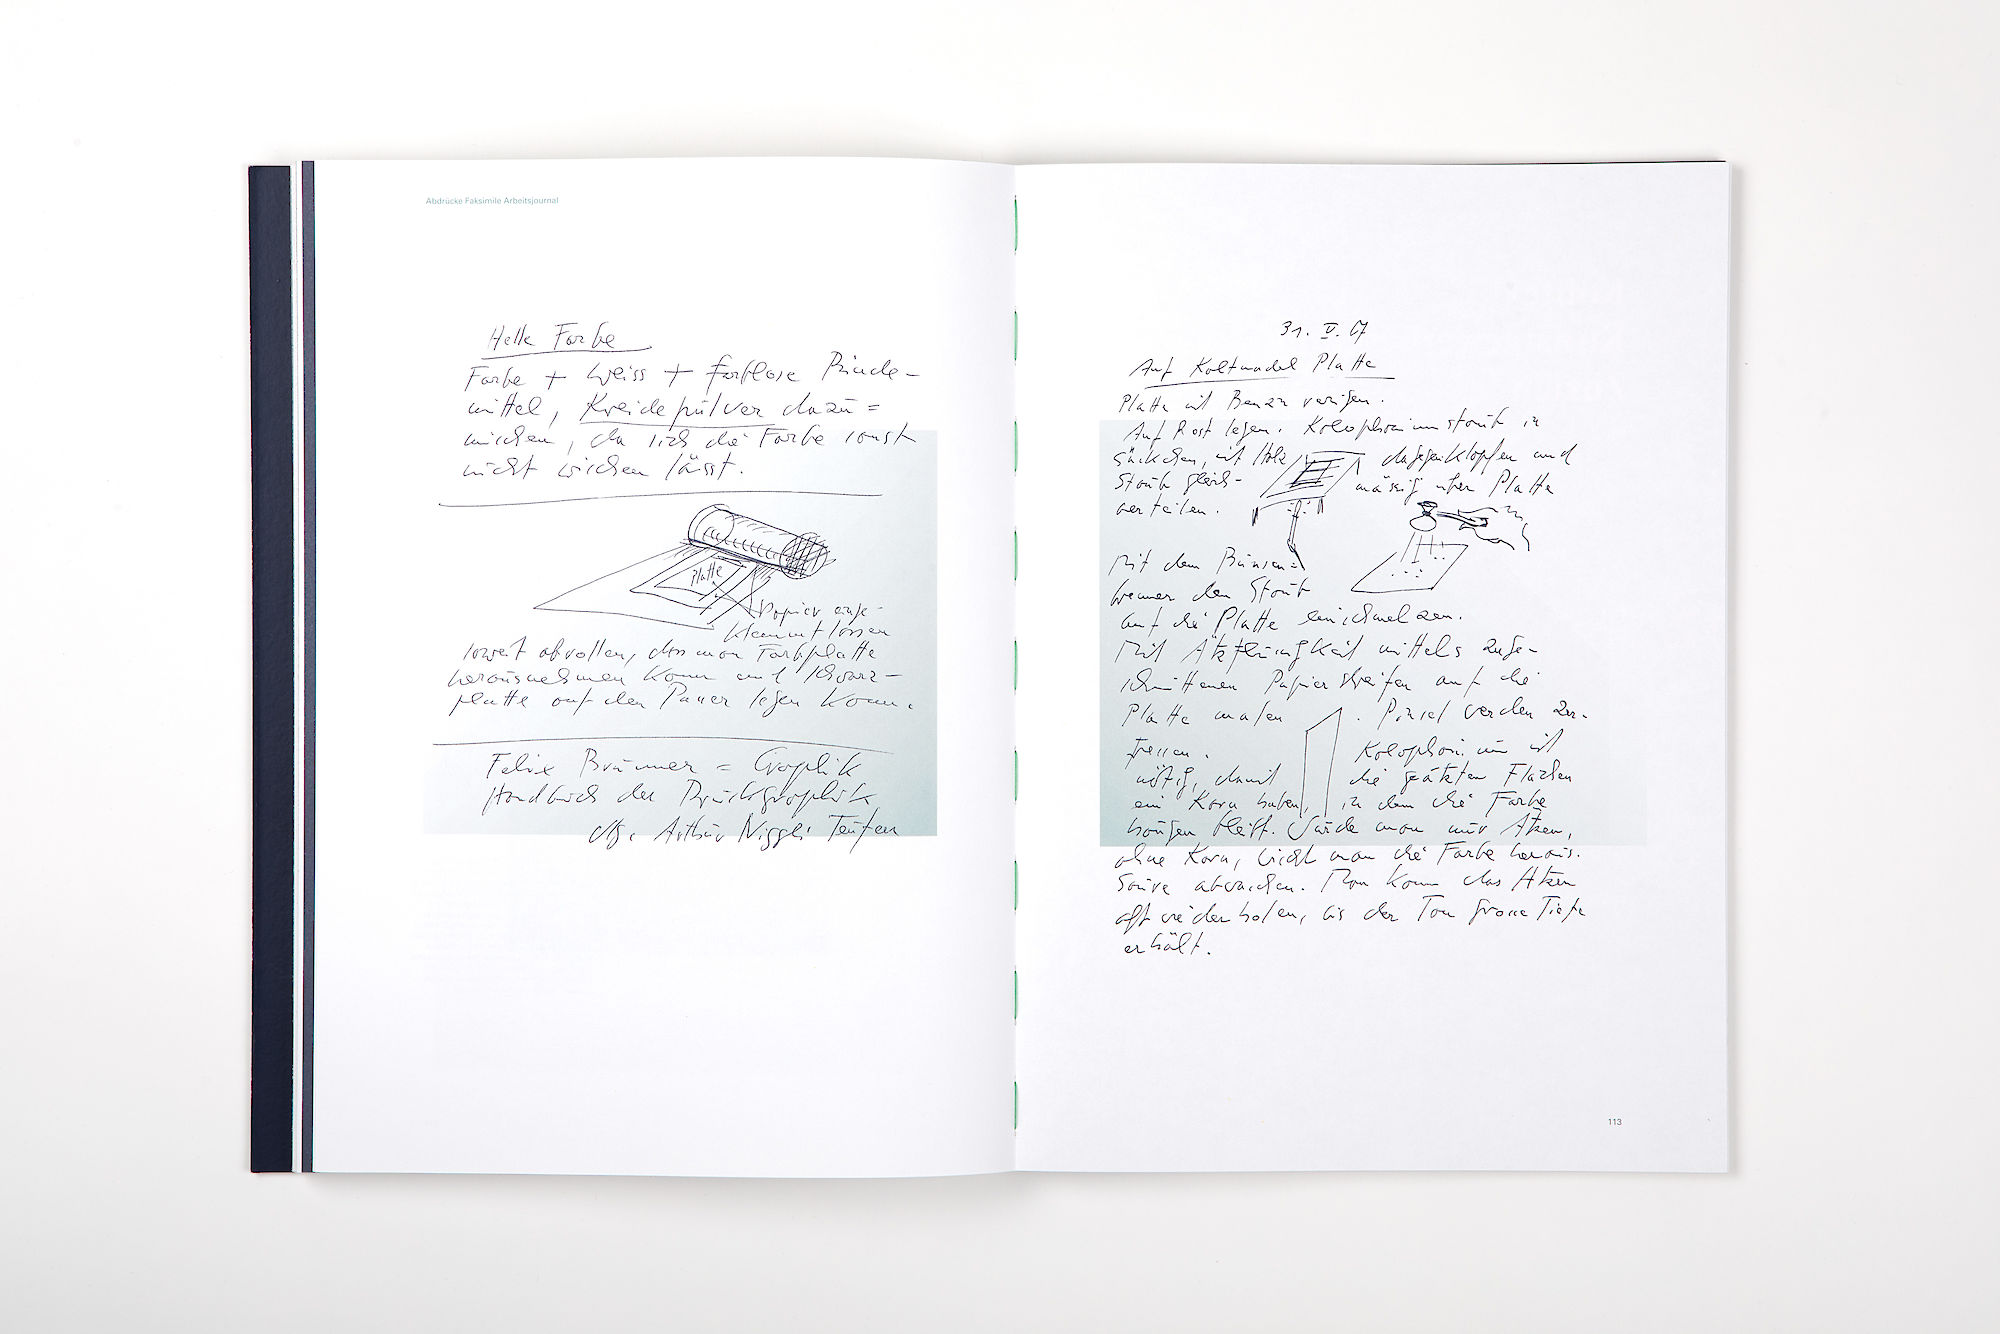 Abdrücke Faksimile Arbeitsjournal
Helle Farbe
Farbe + Weiss + farblose Binde-
mittel, Kreidepulver dazu=
mischen, da sich die Farbe sonst
nicht wischen lässt.
Platte
Papier einge-
klemmt lassen
soweit abrollen, dass man Farbplatte
herausnehmen kann und Schwarz-
platte auf den Panzer legen kann.
Felix Brunner = Graphik
Handbuch der Druckgraphik
Arthur Niggli Teufen
31. V. 67
Auf Kaltnadel Platte
Platte mit Benzin reinigen.
Auf Rost legen. Kolophoniumstaub in
Säckchen, mit Holz dagegenklopfen und
Staub gleich- mässig über Platte
verteilen.
Mit dem Bunsen=
brenner den Staub
auf die Platte einschmelzen.
Mit Ätzflüssigkeit mittels zuge-
schnittenen Papierstreifen auf die
Platte malen. Pinsel werden zer-
fressen. Kolophonium ist
nötig, damit die geätzten Flächen
ein Korn haben, in dem die Farbe
hängen bleibt. Würde man nur Ätzen,
ohne Korn, wischt man die Farbe heraus.
Säure abwaschen. Man kann das Ätzen
oft wiederholen, bis der Ton grosse Tiefe
erhält.
113